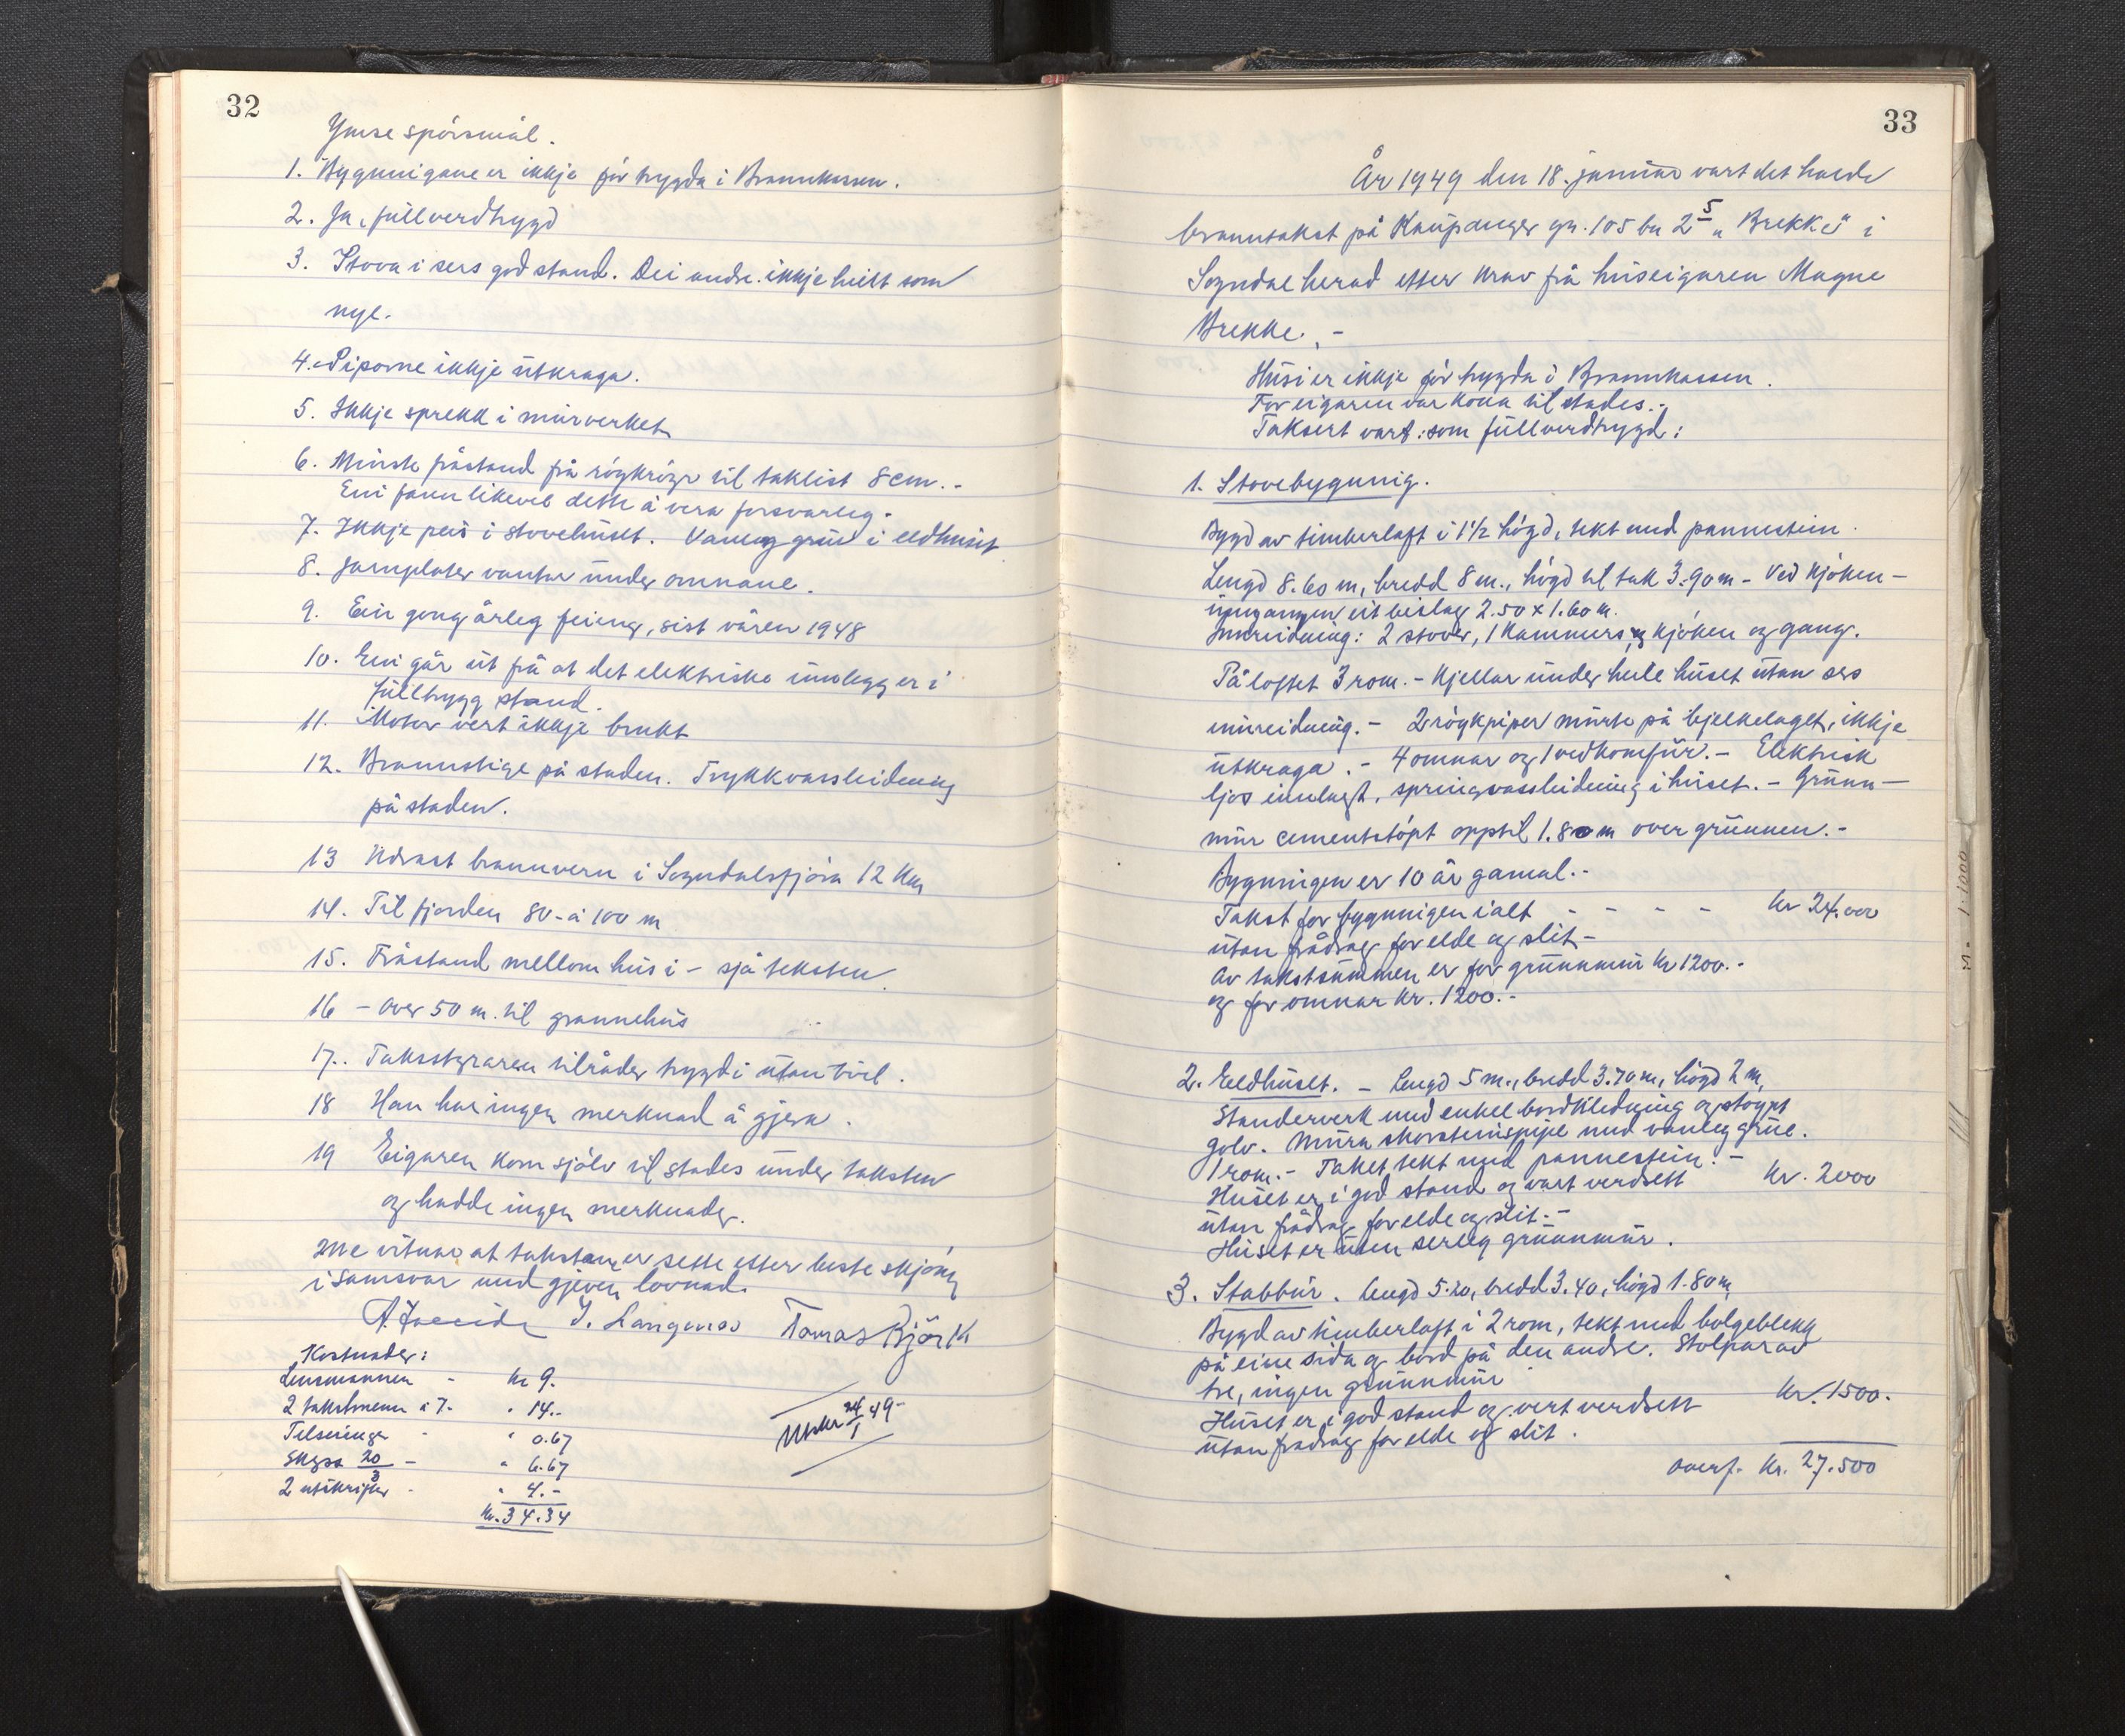 32
Ymse spörsmål.
1. Bygningane er ikkje för trygda i Brannkassen.
2. Ja, fullverdtrygd
3. Stova i sers god stand. Dei andre ikkje heilt som
nye.
4. Piporne ikkje utkraga.
5. Ikkje sprekk i murverket
6. Minste fråstand frå röykrör til taklist 8 cm.-
Ein fann likevel dette å vera forsvarleg.
7. Ikkje peis i stovehuset. Vanleg grue i eldhuset
8. Jarnplater vantar under omnane.
9. Ein gong årleg feiing, sist våren 1948
10. Ein går ut frå at det elektriske innlegg er i
fulltrygg stand.
11. Motor vert ikkje brukt
12. Brannstige på staden. Trykkvassleidning
på staden.
13 Närast brannvern i Sogndalsfjöra 12 km
14. Til fjorden 80-à 100 m
15. Fråstand mellom husi - sjå teksten.
16 - over 50 m. til grannehus
17. Takststyraren tilråder trygdi utan tvil.
18 Han har ingen merknad å gjera.
19 Eigaren kom sjölv til stades under taksten
og hadde ingen merknader.
Me vitnar at taksten er sette etter beste skjöny
i samsvar med gjeven lovnad.
Tomas Björk
Kostnader:
Lensmannen - kr 9.
2 takstmenn à 7.- " 14.-
" 0.67
Skyss 20/3 - " 6.67
2 utskrifter - " 4.-
kr. 34.34
24/1 49-
33
År 1949 den 18. januar vart det halde
branntakst på Kaupanger gn. 105 bn 2 5 "Brekke" i
Sogndal herad etter krav frå huseigaren Magne
Brekke. -
Husi er ikkje för trygda i Brannkassen.
For eigaren var kona til stades.-
Taksert vart: som fullverdtrygd:
1. Stovebygnig.
Bygd av timberlaft i 1½ högd, tekt med pannestein.
Lengd 8.60 m, bredd 8 m., högd til tak 3.90 m - Ved kjöken-
inngangen eit bislag 2.50 x 1.60 m.
Innreidning: 2 stover, 1 kammers, kjöken og gang.
På loftet 3 rom. - Kjellar under heile huset utan sers
innreidning. - 2 röykpiper murte på bjelkelaget, ikkje
utkraga. - 4 omnar og 1 vedkomfür. - Elektrisk
ljos innlagt, springvassleidning i huset. - Grunn-
mur cementstöpt opptil 1.80 m over grunnen.-
Bygningen er 10 år gamal.-
Takst for bygnnigen ialt - - - - kr 24.000
utan frådrag for elde og slit-
Av takstsummen er for grunnmur kr 1200.-
og for omnar kr. 1200.-
2. Eeldhuset. - Lengd 5 m., bredd 3.70 m, högd 2 m,
Standerverk med enkel bordkledning og stöypt
golv. Mura skorsteinspipe med vanleg grue.
1 rom. - Taket tekt med pannestein. -
Huset er i god stand og vart verdsett kr. 2000
utan frådrag for elde og slit.-
Huset er uten serleg grunnmur.
3. Stabbur. Lengd 5.20, bredd 3.40, högd 1.80 m,
Bygd av timberlaft i 2 rom, tekt med bolgeblekk
på eine sida og bord på den andre. Stolpar av
tre, ingen grunnmur
Huset er i god stand og vert verdsett kr. 1500.
utan frådrag for elde og slit.
overf. kr. 27.500
M. 1:1000